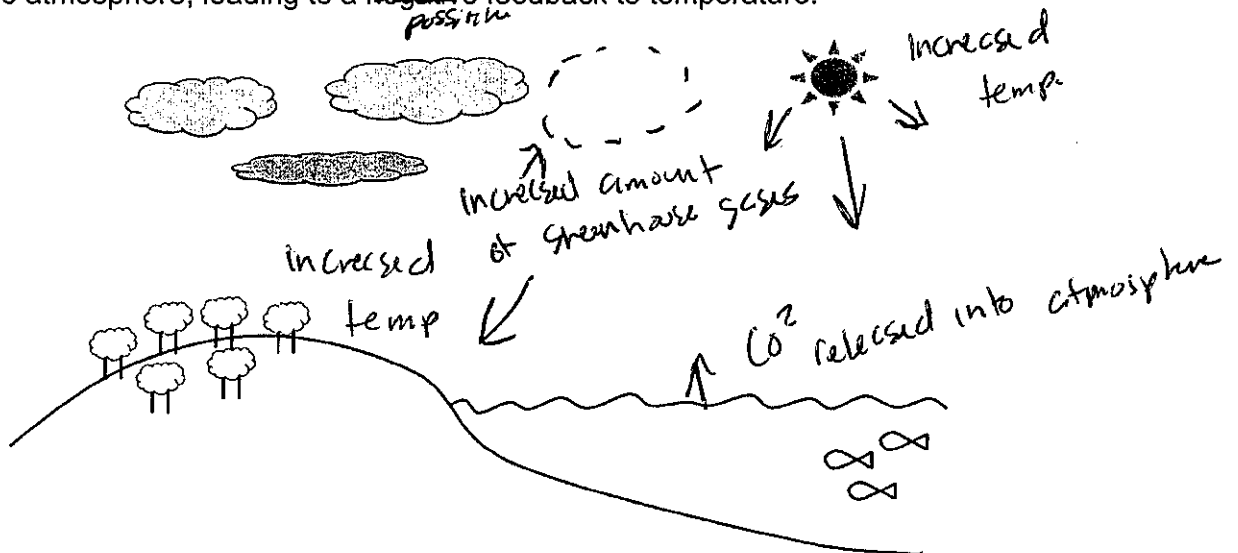 e atmosphere, leading to a negative feedback to temperature.
Increased
temp.
increased amount
of greenhouse gases
increased
temp
Co² released into atmosphere